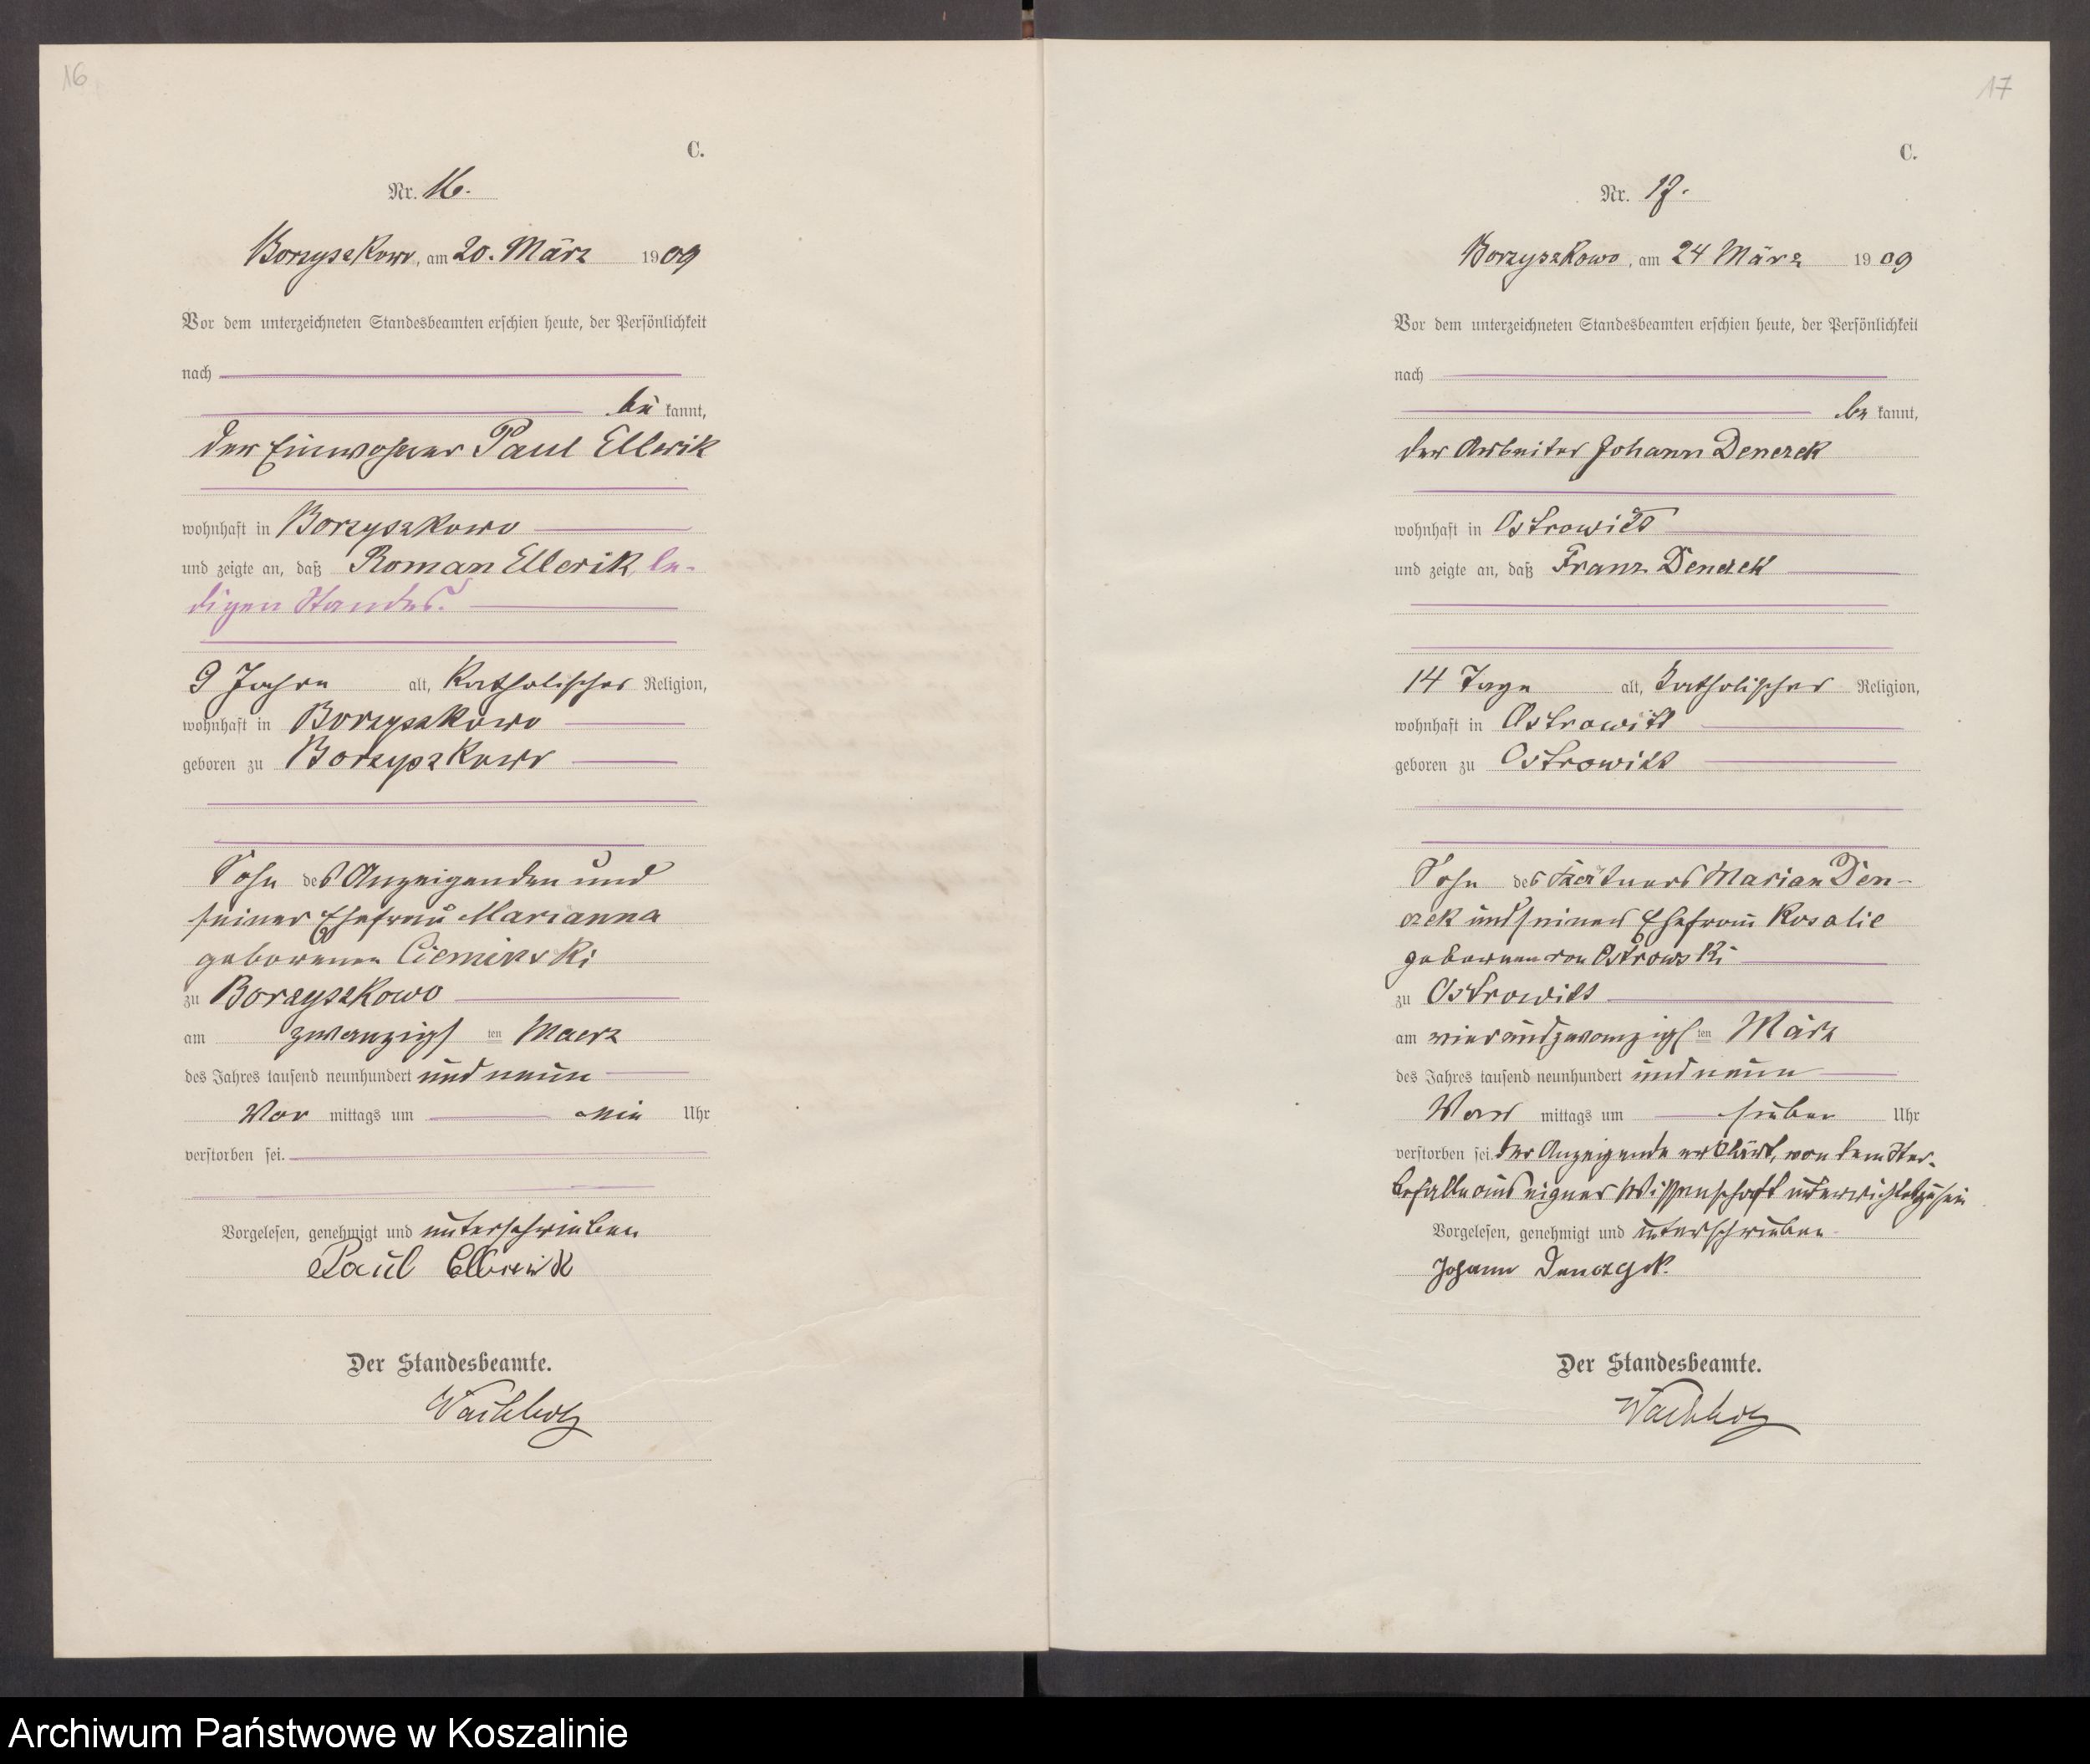 16
C.
Nr. 16.
Borzyszkowo, am 20. März 1909
Vor dem unterzeichneten Standesbeamten erschien heute, der Persönlichkeit
nach
be kannt,
der Einwohner Paul Ellerik
wohnhaft in Borzyszkowo
und zeigte an, daß Roman Ellerik, le-
digen Standes.
9 Jahre alt, katholischer Religion,
wohnhaft in Borzyszkowo
geboren zu Borzyszkowo
Sohn des Anzeigenden und
seiner Ehefrau Marianna
geborenen Cieminski
zu Borzyszkowo
am zwanzigsten Maerz
des Jahres tausend neunhundert und neun
Vor mittags um Uhr
verstorben sei.
Vorgelesen, genehmigt und unterschrieben
Paul Ellerik
Der Standesbeamte.
17
C.
Nr. 17.
Borzyszkowo, am 24 März 1909
Vor dem unterzeichneten Standesbeamten erschien heute, der Persönlichkeit
nach
be kannt,
der Arbeiter Johann Denczek
wohnhaft in Ostrowitt
und zeigte an, daß Franz Denczek
14 Tage alt, katholischer Religion,
wohnhaft in Ostrowitt
geboren zu Ostrowitt
Sohn des Marian Den-
czek und seiner Ehefrau Rosalie
gebornen von Ostrowski
zu Ostrowitt
am vierundzwanzigsten März
des Jahres tausend neunhundert und neun
Vor mittags um sieben Uhr
verstorben sei. Der Anzeigende erklärt, von dem Ster-
befalle aus eigner Wissenschaft unterrichtet zu sein
Vorgelesen, genehmigt und unterschrieben
Johann
Der Standesbeamte.
Archiwum Państwowe w Koszalinie